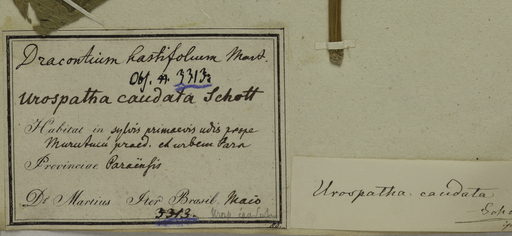 Dracontium hastifolium Mart.
Obs. n. 3313.
Urospatha caudata Schott
Habitat in sylvis primaevis udis prope
Murutucú praed. et urbem Para
Provinciae Paraënsis
Dr Martius Iter Brasil. Maio
3313.
Urospatha caudata